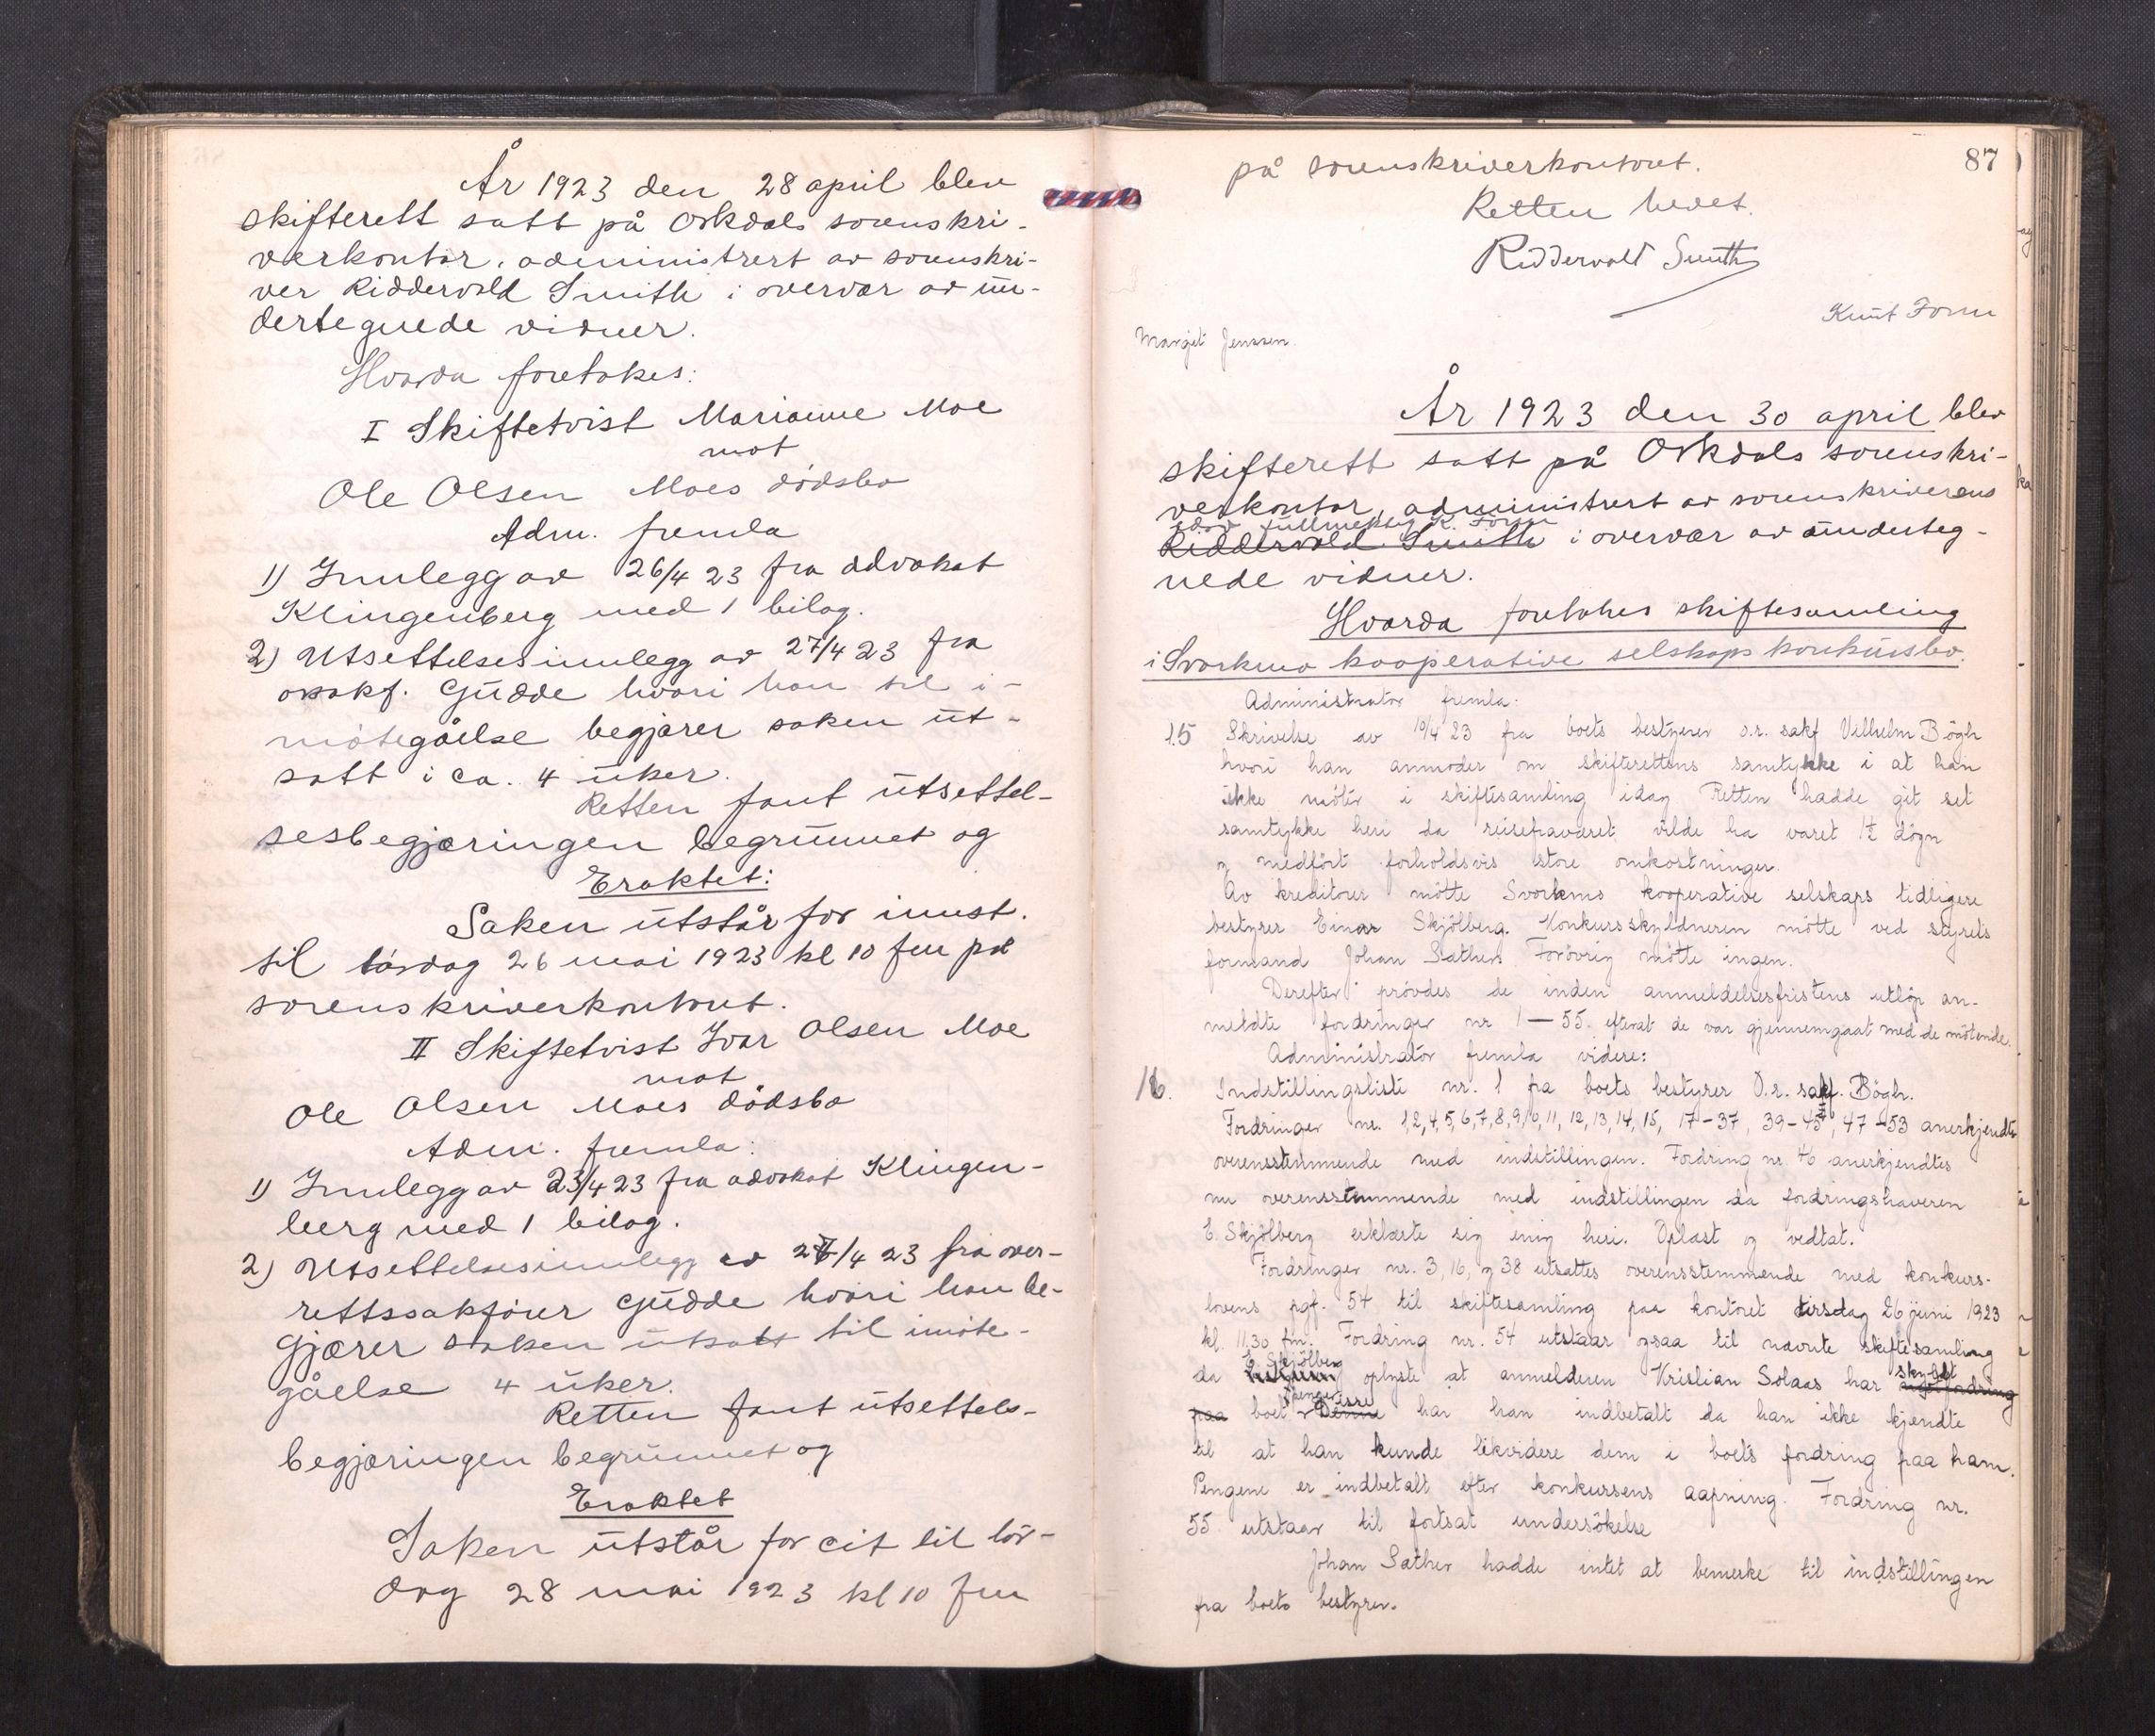 År 1923 den 28 april blev
skifterett satt på Orkdals sorenskri-
verkontor, administrert av sorenskri-
ver Riddervold Smith i overvær av un-
dertegnede vidner.
Hvorda foretokes:
I Skiftetvist Marianne Moe
mot
Ole Olsen Moes dødsbo
Adm. fremla
1) Innlegg av 26/4 23 fra advokat
Klingenberg med 1 bilag.
2) Utsettelsesinnlegg av 27/4 23 fra
orsakf. Gudde hvori han til i-
møtegåelse begjærer saken ut-
satt i ca. 4 uker.
Retten fant utsettel-
sesbegjæringen begrunnet og
Eraktet:
Saken utstår for innst.
til lørdag 26 mai 1923 kl 10 fm på
sorenskriverkontoret.
II Skiftetvist Ivar Olsen Moe
mot
Ole Olsen Moes dødsbo
Adm. fremla:
1) Innlegg av 23/4 23 fra advokat Klingen-
berg med 1 bilag.
2) Utsettelsesinnlegg av 27/4 23 fra over-
rettssakfører Gudde hvori han be-
gjærer saken utsatt til imøte-
gåelse 4 uker.
Retten fant utsettels-
begjæringen begrunnet og
Eraktet
Saken utstår for cit til lør-
dag 28 mai 1923 kl 10 fm
87
på sorenskriverkontoret.
Retten hevet.
Riddervold Smith
Knut Forn
Margit Jenssen.
År 1923 den 30 april blev
skifterett satt på Orkdals sorenskri-
verkontor, administrert av sorenskriverens
edsv. fullmektig K. Forn
Riddervold Smith i overvær av underteg-
nede vidner.
Hvorda foretokes skiftesamling
i Svorkmo kooperative selskaps konkursbo.
Administrator fremla:
15 Skrivelse av 19/4 23 fra boets bestyrer o.r. sakf Vilhelm Bögh
hvori han anmoder om skifterettens samtykke i at han
ikke möter i skiftesamling idag Retten hadde git sit
samtykke heri da reisefraværet vilde ha varet 1½ dögn
og medfört forholdsvis store omkostninger.
Av kreditorer mötte Svorkmo kooperative selskaps tidligere
bestyrer Einar Skjölberg. Konkursskyldneren mötte ved styrets
formand Johan Sæther. Forövrig mötte ingen.
Derefter prövdes de inden anmeldelsesfristens utlöp an-
meldte fordringer nr 1-55. efterat de var gjennemgaat med de mötende.
Administrator fremla videre:
16. Indstillingsliste nr. 1 fra boets bestyrer O.r. sakf. Bögh.
Fordringer nr. 1,2,4,5,6,7,8,9,10,11,12,13,14,15, 17-37, 39-45, 47-53 anerkjendtes
overensstemmende med indstillingen. Fordring nr 46 anerkjendtes
nu overensstemmende med indstillingen da fordringshaveren
E. Skjölberg erklærte sig enig heri. Oplæst og vedtat.
Fordringer nr. 3, 16, og 38 utsattes overensstemmende med konkurs-
lovens pgf. 54 til skiftesamling paa kontoret tirsdag 26 juni 1923
kl. 11,30 fm. Fordring nr. 54 utstaar ogsaa til nævnte skiftesamling
E. Skjölberg
da oplyste at anmelderen Kristian Solaas har skyldt
penger disse
paa boet Denne har han indbetalt da han ikke kjendte
til at han kunde likvidere dem i boets fordring paa ham.
Pengene er indbetalt efter konkursens aapning. Fordring nr.
55 utstaar til fortsat undersökelse
Johan Sæther hadde intet at bemerke til indstillingen
fra boets bestyrer.